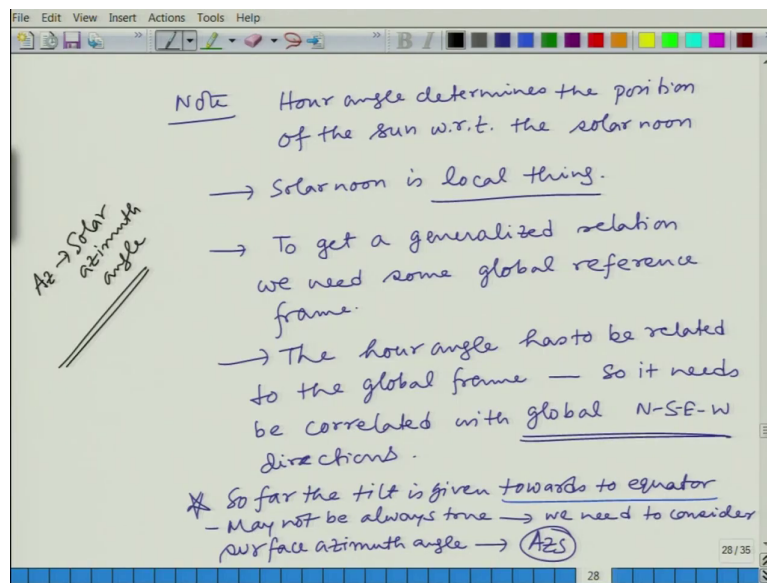 File Edit View Insert Actions Tools Help
Note Hour angle determines the position
of the sun w.r.t. the solar noon
→ Solar noon is local thing.
Az → Solar
azimuth
angle
→ To get a generalized relation
we need some global reference
frame.
→ The hour angle has to be related
to the global frame — so it needs
be correlated with global N-S-E-W
directions.
* So far the tilt is given towards to equator
- May not be always true → we need to consider
surface azimuth angle → AzS
28 / 35
28